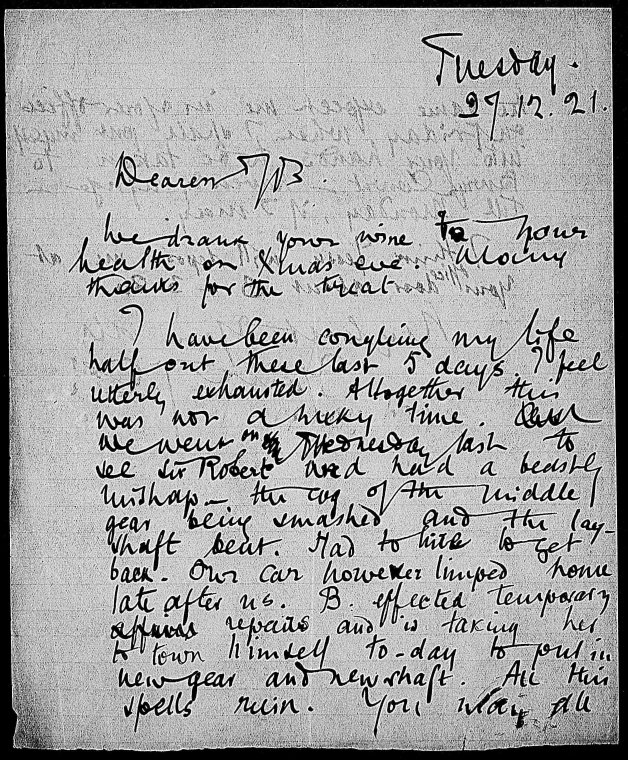 Tuesday.
27.12.21.
Dearest JB.
We drank your wine to your
health on Xmas eve. Many
thanks for the treat
I have been coughing my life
half out these last 5 days. I feel
utterly exhausted. Altogether this
was not a lucky time.
we went on Wednesday last to
see Sir Robert and had a beastly
mishap – the cog of the middle
gear being smashed and the lay-
shaft bent. Had to hire to get
back. Our car however limped home
late after us. B. effected temporary
repairs and is taking her
to town himself to-day to put in
new gear and new shaft. All this
spells ruin. You may all